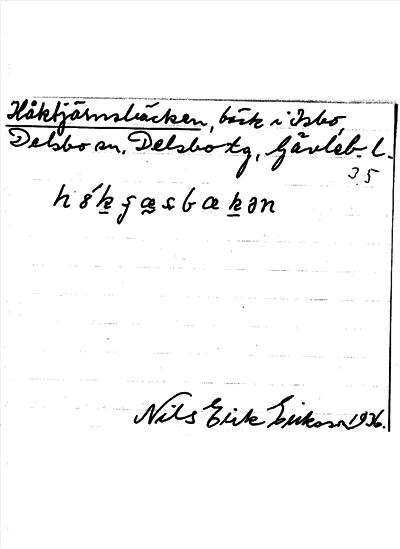 Håktjärnsbäcken, bäck i Isbo,
Delsbo sn, Delsbo tg, Gävleb. l.
35
Nils Erik Eriksson 1936.